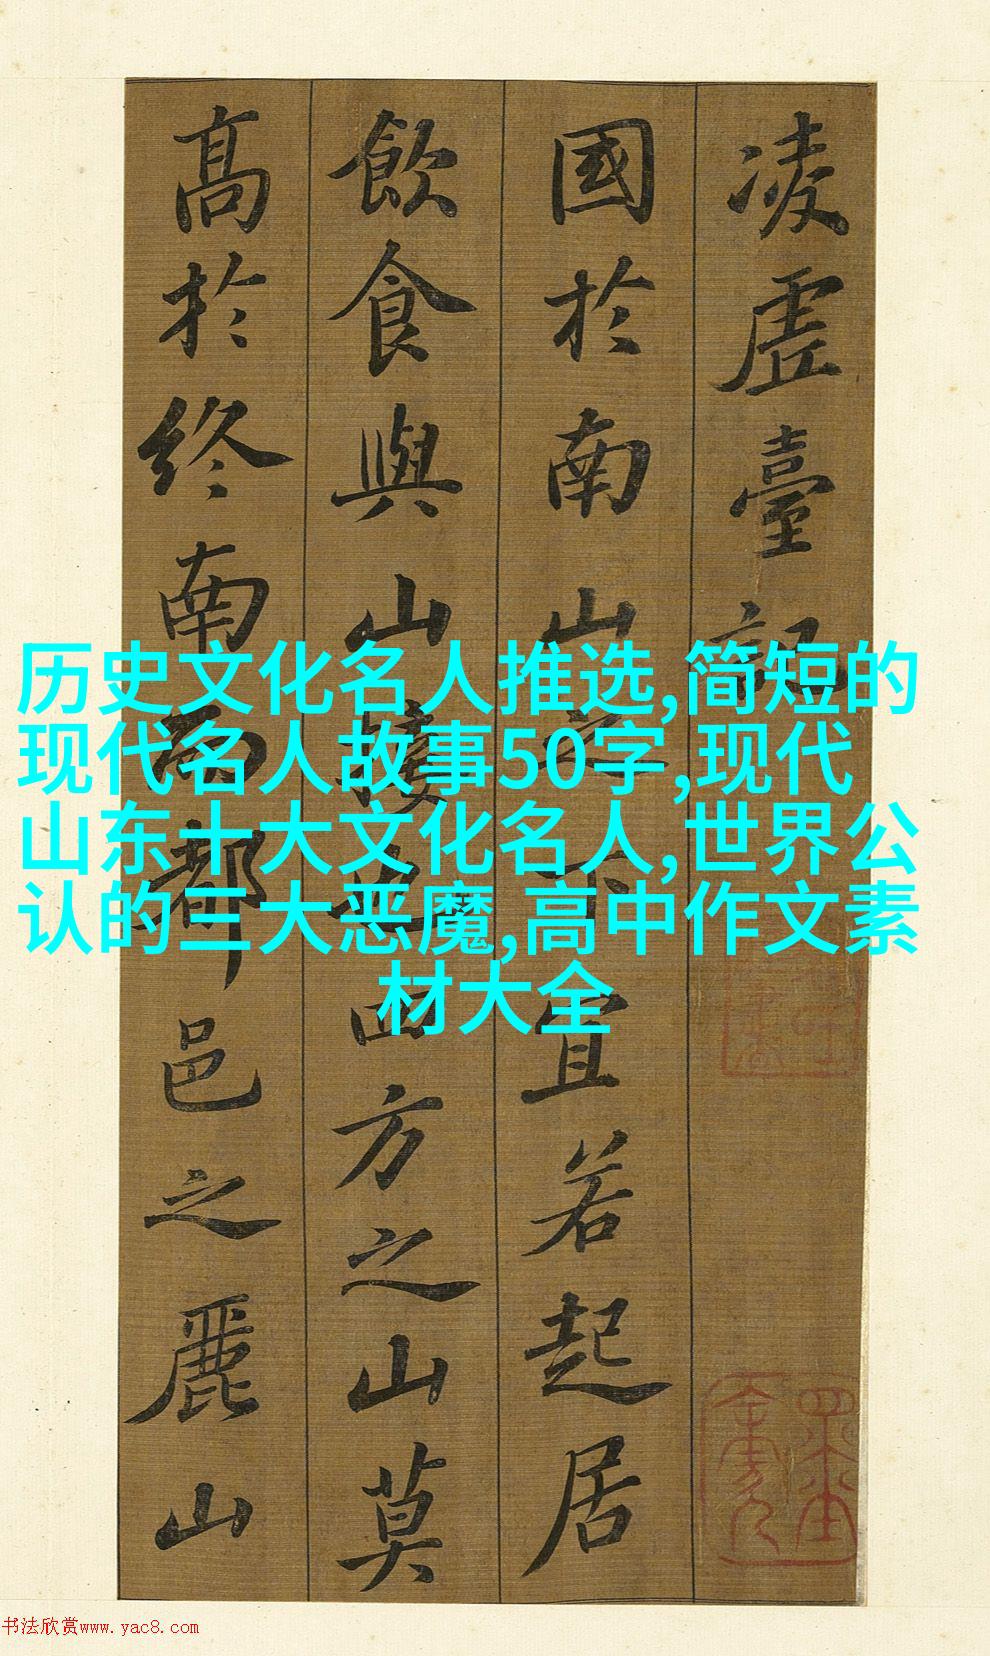 凌虗臺記
國於南山之下宜若起居
飲食與山接也四方之山莫
高於終南而都邑之麗山
历史文化名人推选,简短的
现代名人故事50字,现代
山东十大文化名人,世界公
认的三大恶魔,高中作文素
材大全
书法欣赏www.yac8.com